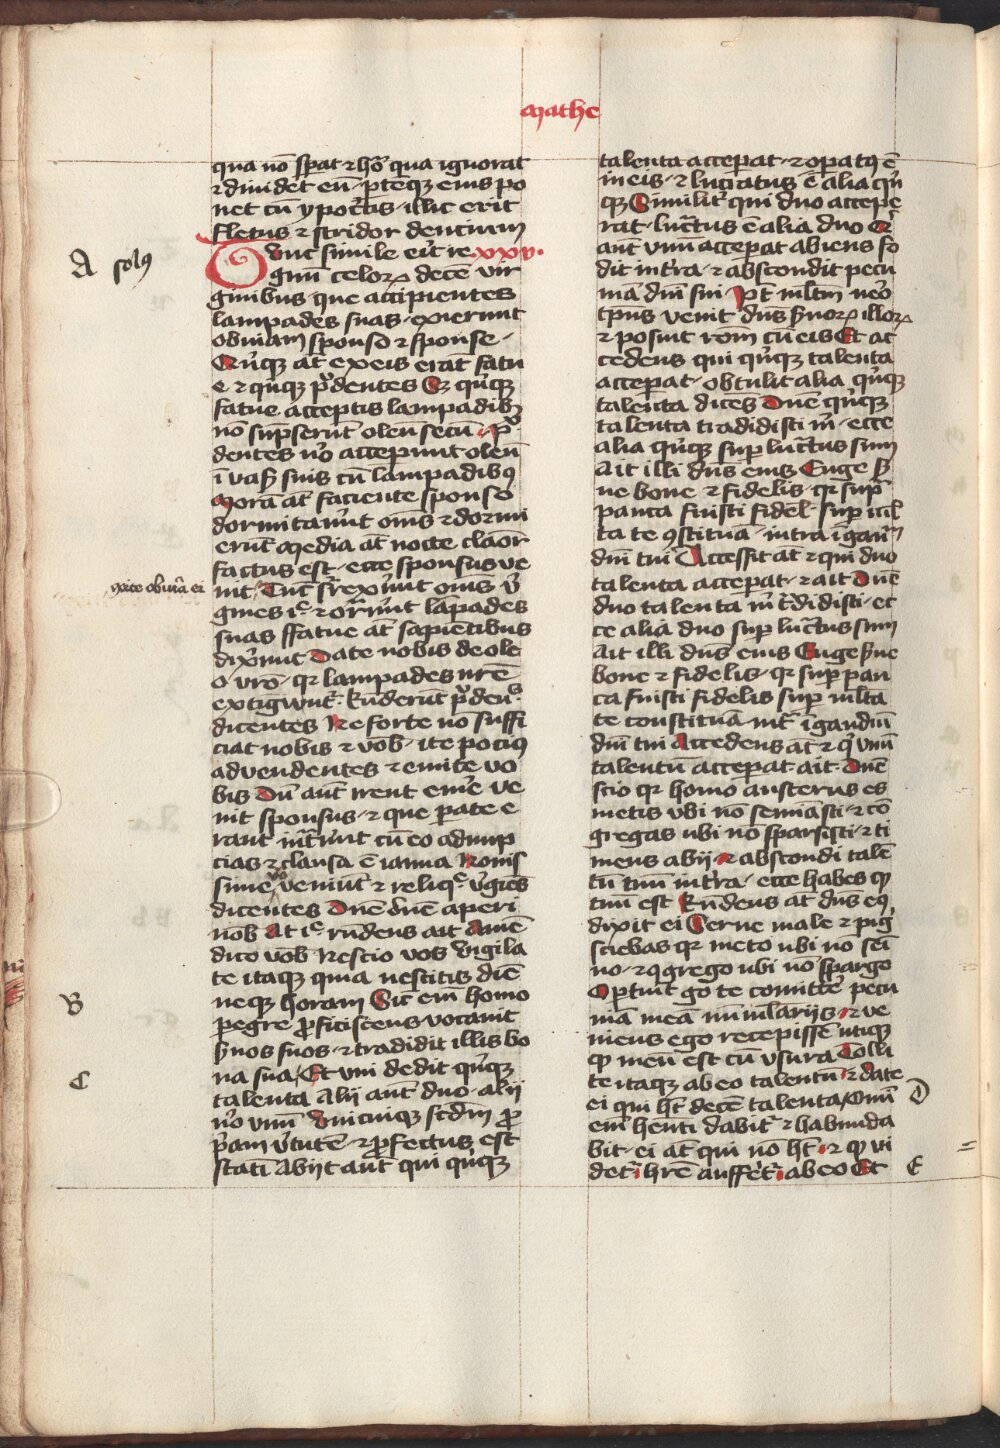 mathe
qua nō sꝑat ⁊ hōꝰ qua ignorat
⁊ dividēt eū · ꝑtēqꝫ eius po
net cū ypoc̄tis · illic erit
fletus ⁊ stridor dencium
Tunc simile eīt re xxv·
gnū celoꝝ decē vir
ginibus que accipientes
lampades suas · exierunt
obuiam sponso ⁊ sponse ·
Qīnqꝫ āt ex eis erāt fatu
e ⁊ qīnqꝫ pͦdentes Sꝫ qīnqꝫ
fatue acceptis lampadibꝫ
nō sūpserūt oleū secū · Pͦ
dentes v̄o acceperūt oleū
ī vaß suis cū lampadibꝰ
Morā āt faciente sponso
dormitaūnt om̄s ⁊ dormi
erūt Media āt nocte claōr
factus est · ecce sponsus ve
nit · Tūc s̄rexūnt om̄s v̄
gines ic̄ · ⁊ orn̄ūnt lāpades
suas ffatue āt sapientibus
dix̄unt Date nobis de ole
o vr̄o · qꝛ lampades nr̄e
extīguūt̄ · Rn̄derūt pͦden̄s
dicentes Ne forte nō suffi
ciat nobis ⁊ vob̄ · ite pociꝰ
ad vendentes ⁊ emite vo
bis Dū aūt irent em̄e ve
nit sponsus · ⁊ que ꝑate e
rant int̄ūnt cū eo ad nup
cias ⁊ clausa ē ianua Nouis
sime vͦ veniūt ⁊ reliqͥ v̄gīes
dicentes Dn̄e dn̄e aperi
nob̄ At ic̄ rn̄dens ait Amē
dico vob̄ Nescio vos Vigila
te itaqꝫ quia nescitis diē
neqꝫ horam Sic̄ em̄ homo
ꝑegre ꝓficiscens vocauit
ẜuos suos · ⁊ tradidit illis bo
na sua / Et vni dedit qīnqꝫ
talenta Alij aūt duo · alij
v̄o vnū Vnicuiqꝫ scdm̄ ꝓ
p̄am v̄tutē · ⁊ ꝓfectus est
statī Abijt aūt qui qīnqꝫ
talenta acceꝑat · ⁊ oꝑatꝰ ē
in eis · ⁊ lucratus ē alia qīn
qꝫ Similit̄ qui duo accepe
rat · luc̄tus ē alia duo Qͥ
aūt vnū acceꝑat abiens fo
dit in t̄ra · ⁊ abscondit pecu
niā dn̄i sui Pꝰt ml̄tm̄ v̄o
tp̄us venit dn̄s ẜuoꝝ illoꝝ
⁊ posuit rōm cū eis Et ac
cedens qui qīnqꝫ talenta
acceꝑat · obtulit alia qīnqꝫ
talenta dicēs Dn̄e qīnqꝫ
talenta tradidisti m̄ · ecce
alia qīnqꝫ suꝑ luc̄tus sum
Ait illi dn̄s eius Euge ẜ
ue bone ⁊ fidelis · qꝛ suꝑ
pauca fuisti fidel̄ · suꝑ ml̄
ta te ꝯstituā · intra ī gau
diū tui Accessit āt ⁊ qui duo
talenta acceꝑat · ⁊ ait Dn̄e
duo talenta m̄ t̄didisti · ec
ce alia duo suꝑ luc̄tus sum
Ait illi dn̄s eius Euge ẜue
bone ⁊ fidelis · qꝛ suꝑ pau
ca fuisti fidelis suꝑ ml̄ta
te constituā int̄ ī gaudiū
dn̄i tui Accedens āt ⁊ qͥ vnū
talentū acceꝑat · ait · Dn̄e
scio qꝛ homo austerus es
metis vbi nō semīasti · ⁊ cō
gregas ubi nō sparsisti · ⁊ ti
mens abij · ⁊ abscondi talē
tū tuū in t̄ra · ecce habes qͦ
tuū est Rn̄dens āt dn̄s eꝰ
dixit ei Serue male ⁊ piḡ
sciebas qꝛ meto ubi nō sēi
no · ⁊ ꝯgrego ubi nō spargo
Oꝑtuit ḡo te comitt̄e pecu
niā meā nūmlāriis · ⁊ ve
niens ego recepissē utiqꝫ
qͦ meū est cū vsura Tolli
te itaqꝫ ab eo talentū · ⁊ date
ei qui ht̄ decē talenta / Omī
em̄ henti dabit̄ ⁊ habunda
bit · ei āt qui nō ht̄ · ⁊ qͦ vi
det̄ hr̄e auffet̄ · ab eo Et
A solꝰ
exite obuiā ei
B
C
D
E